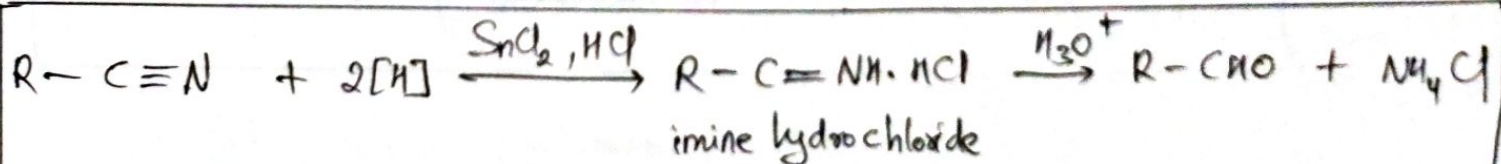 R - C≡N + 2[H] SnCl₂, HCl → R - C=NH·HCl H₃O⁺ → R - CHO + NH₄Cl
imine hydrochloride